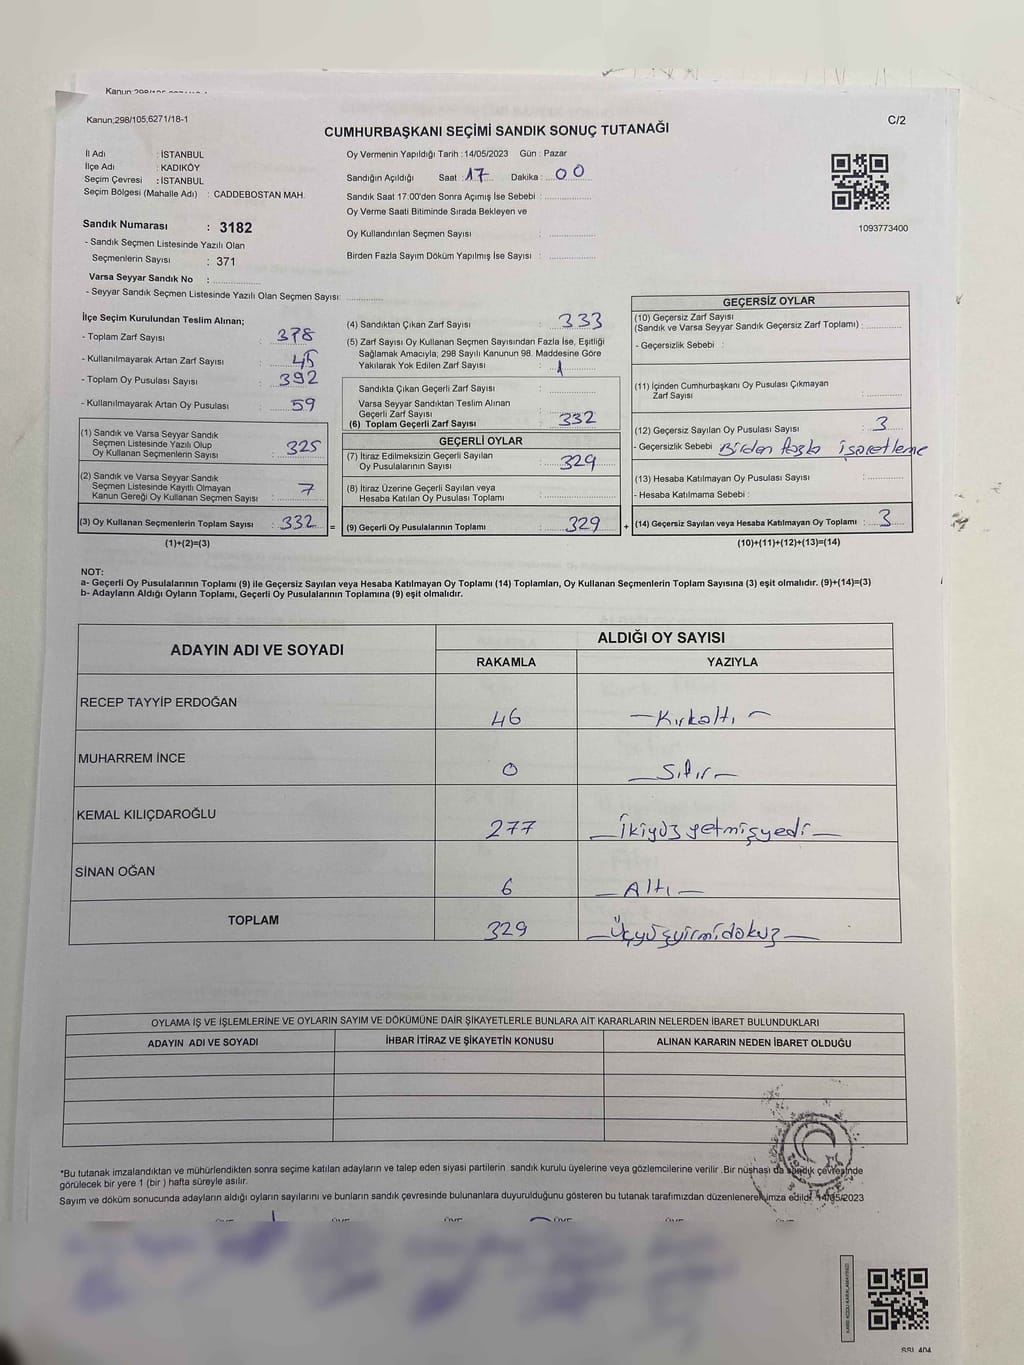 Kanun;298/105;6271/18-1
C/2
CUMHURBAŞKANI SEÇİMİ SANDIK SONUÇ TUTANAĞI
İl Adı : İSTANBUL
İlçe Adı : KADIKÖY
Seçim Çevresi : İSTANBUL
Seçim Bölgesi (Mahalle Adı) : CADDEBOSTAN MAH.
Oy Vermenin Yapıldığı Tarih : 14/05/2023 Gün : Pazar
Sandığın Açıldığı Saat : 17 Dakika : 00
Sandık Saat 17:00'den Sonra Açımış İse Sebebi :
Oy Verme Saati Bitiminde Sırada Bekleyen ve
Oy Kullandırılan Seçmen Sayısı :
Birden Fazla Sayım Döküm Yapılmış İse Sayısı :
1093773400
Sandık Numarası : 3182
- Sandık Seçmen Listesinde Yazılı Olan
Seçmenlerin Sayısı : 371
Varsa Seyyar Sandık No :
- Seyyar Sandık Seçmen Listesinde Yazılı Olan Seçmen Sayısı:
İlçe Seçim Kurulundan Teslim Alınan;
- Toplam Zarf Sayısı : 378
- Kullanılmayarak Artan Zarf Sayısı : 45
- Toplam Oy Pusulası Sayısı : 392
- Kullanılmayarak Artan Oy Pusulası : 59
(1) Sandık ve Varsa Seyyar Sandık
Seçmen Listesinde Yazılı Olup
Oy Kullanan Seçmenlerin Sayısı : 325
(2) Sandık ve Varsa Seyyar Sandık
Seçmen Listesinde Kayıtlı Olmayan
Kanun Gereği Oy Kullanan Seçmen Sayısı : 7
(3) Oy Kullanan Seçmenlerin Toplam Sayısı : 332 =
(1)+(2)=(3)
(4) Sandıktan Çıkan Zarf Sayısı : 333
(5) Zarf Sayısı Oy Kullanan Seçmen Sayısından Fazla İse, Eşitliği
Sağlamak Amacıyla; 298 Sayılı Kanunun 98. Maddesine Göre
Yakılarak Yok Edilen Zarf Sayısı : 1
Sandıkta Çıkan Geçerli Zarf Sayısı :
Varsa Seyyar Sandıktan Teslim Alınan
Geçerli Zarf Sayısı :
(6) Toplam Geçerli Zarf Sayısı : 332
GEÇERLİ OYLAR
(7) İtiraz Edilmeksizin Geçerli Sayılan
Oy Pusulalarının Sayısı : 329
(8) İtiraz Üzerine Geçerli Sayılan veya
Hesaba Katılan Oy Pusulası Toplamı :
(9) Geçerli Oy Pusulalarının Toplamı : 329 +
GEÇERSİZ OYLAR
(10) Geçersiz Zarf Sayısı
(Sandık ve Varsa Seyyar Sandık Geçersiz Zarf Toplamı) :
- Geçersizlik Sebebi :
(11) İçinden Cumhurbaşkanı Oy Pusulası Çıkmayan
Zarf Sayısı :
(12) Geçersiz Sayılan Oy Pusulası Sayısı : 3
- Geçersizlik Sebebi : Birden fazla işaretleme
(13) Hesaba Katılmayan Oy Pusulası Sayısı :
- Hesaba Katılmama Sebebi :
(14) Geçersiz Sayılan veya Hesaba Katılmayan Oy Toplamı : 3
(10)+(11)+(12)+(13)=(14)
NOT:
a- Geçerli Oy Pusulalarının Toplamı (9) ile Geçersiz Sayılan veya Hesaba Katılmayan Oy Toplamı (14) Toplamları, Oy Kullanan Seçmenlerin Toplam Sayısına (3) eşit olmalıdır. (9)+(14)=(3)
b- Adayların Aldığı Oyların Toplamı, Geçerli Oy Pusulalarının Toplamına (9) eşit olmalıdır.
ADAYIN ADI VE SOYADI
ALDIĞI OY SAYISI
RAKAMLA YAZIYLA
RECEP TAYYİP ERDOĞAN 46 Kırkaltı
MUHARREM İNCE 0 Sıfır
KEMAL KILIÇDAROĞLU 277 İkiyüz yetmişyedi
SİNAN OĞAN 6 Altı
TOPLAM 329 Üçyüzyirmidokuz
OYLAMA İŞ VE İŞLEMLERİNE VE OYLARIN SAYIM VE DÖKÜMÜNE DAİR ŞİKAYETLERLE BUNLARA AİT KARARLARIN NELERDEN İBARET BULUNDUKLARI
ADAYIN ADI VE SOYADI İHBAR İTİRAZ VE ŞİKAYETİN KONUSU ALINAN KARARIN NEDEN İBARET OLDUĞU
*Bu tutanak imzalandıktan ve mühürlendikten sonra seçime katılan adayların ve talep eden siyasi partilerin sandık kurulu üyelerine veya gözlemcilerine verilir .Bir nüshası da sandık çevresinde
görülecek bir yere 1 (bir ) hafta süreyle asılır.
Sayım ve döküm sonucunda adayların aldığı oyların sayılarını ve bunların sandık çevresinde bulunanlara duyurulduğunu gösteren bu tutanak tarafımızdan düzenlenerek imza edildi. 14/05/2023